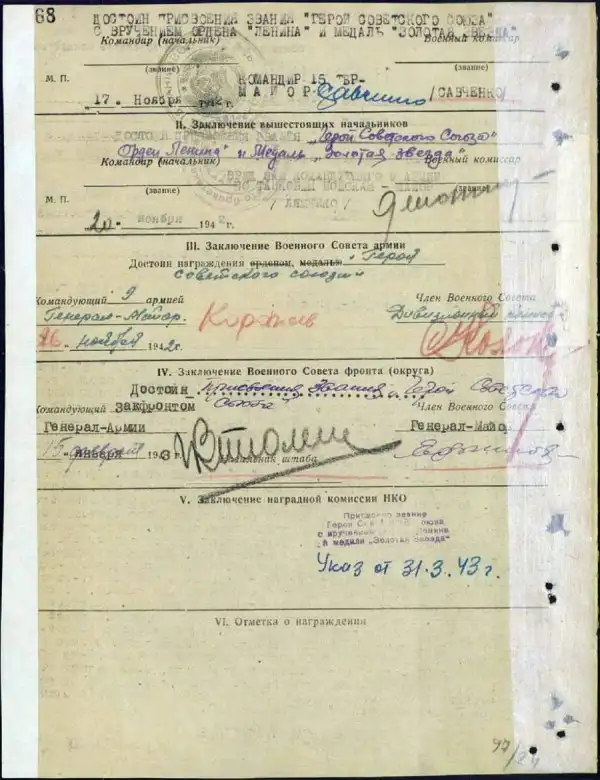 68
ДОСТОИН ПРИСВОЕНИЯ ЗВАНИЯ "ГЕРОЙ СОВЕТСКОГО СОЮЗА"
С ВРУЧЕНИЕМ ОРДЕНА "ЛЕНИНА" И МЕДАЛЬ "ЗОЛОТАЯ ЗВЕЗДА"
Командир (начальник) Военный комиссар
(звание) (звание)
М. П. КОМАНДИР 15 ТБР-
МАЙОР Савченко /САВЧЕНКО/
17. Ноября 1942 г.
II. Заключение вышестоящих начальников
Достоин присвоения звания „Герой Советского Союза"
Орден Ленина" и Медаль „Золотая звезда"
Командир (начальник) Военный комиссар
(звание) (звание)
М. П.
20 ноября 1942 г.
III. Заключение Военного Совета армии
Достоин награждения орденом, медалью „Герой
Советского союза"
Командующий 9 армией Член Военного Совета
Генерал-Майор.
26 ноября 1942 г.
IV. Заключение Военного Совета фронта (округа)
Достоин присвоения звания „Герой Советского
Союза"
Командующий Закфронтом Член Военного Совета
Генерал-Армии Генерал-Майор
января 1943 г.
Начальник штаба
V. Заключение наградной комиссии НКО
Присвоено звание
Героя Союза
с вручением Ленина
и медали „Золотая Звезда"
Указ от 31.3.43 г.
VI. Отметка о награждении